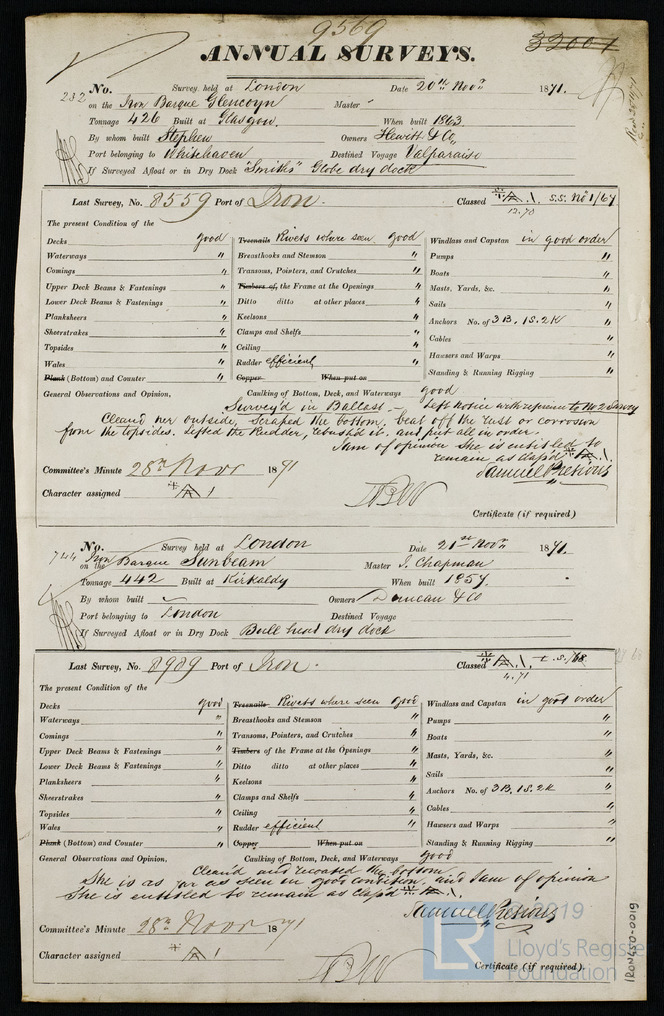 9569
33001
ANNUAL SURVEYS.
232 No. Survey held at London Date 20th Novr 1871.
on the Iron Barque Glencoyn Master
Tonnage 426 Built at Glasgow When built 1863
By whom built Stephen Owners Hewitt & Co
Port belonging to Whitehaven Destined Voyage Valparaiso
If Surveyed Afloat or in Dry Dock "Smiths" Globe dry dock
Last Survey, No. 8559 Port of Iron. Classed A.1. S.S. No 1/67
12.70
The present Condition of the
Decks good Treenails Rivets where seen good Windlass and Capstan in good order
Waterways " Breasthooks and Stemson " Pumps "
Comings " Transoms, Pointers, and Crutches " Boats "
Upper Deck Beams & Fastenings " Timbers of, the Frame at the Openings " Masts, Yards, &c. "
Lower Deck Beams & Fastenings " Ditto ditto at other places " Sails "
Planksheers " Keelsons " Anchors No. of 3B. 1S. 2K "
Sheerstrakes " Clamps and Shelfs " Cables "
Topsides " Ceiling " Hawsers and Warps "
Wales " Rudder efficient " Standing & Running Rigging "
Plank (Bottom) and Counter " Copper When put on
General Observations and Opinion, Caulking of Bottom, Deck, and Waterways good
Survey'd in Ballast - Left notice with reference to No 2 Survey
Clean'd her outside, scraped the bottom, beat off the rust or corrosion
from the topsides. Lifted the Rudder, rebush'd it, and put all in order.
I am of opinion She is entitled to
remain as Class'd A.1.
Samuel Pretious
Committee's Minute 28th Novr 1871
Character assigned A 1
Certificate (if required)
744 No. Survey held at London Date 21st Novr 1871.
on the Iron Barque Sunbeam Master J. Chapman
Tonnage 442 Built at Kirkaldy When built 1857.
By whom built Owners Duncan & Co
Port belonging to London Destined Voyage
If Surveyed Afloat or in Dry Dock Bull head dry dock
Last Survey, No. 8989 Port of Iron. Classed A.1. /68
4.71
The present Condition of the
Decks good Treenails Rivets where seen good Windlass and Capstan in good order
Waterways " Breasthooks and Stemson " Pumps "
Comings " Transoms, Pointers, and Crutches " Boats "
Upper Deck Beams & Fastenings " Timbers of the Frame at the Openings " Masts, Yards, &c. "
Lower Deck Beams & Fastenings " Ditto ditto at other places " Sails "
Planksheers " Keelsons " Anchors No. of 3B. 1S. 2K "
Sheerstrakes " Clamps and Shelfs " Cables "
Topsides " Ceiling " Hawsers and Warps "
Wales " Rudder efficient " Standing & Running Rigging "
Plank (Bottom) and Counter " Copper When put on
General Observations and Opinion, Caulking of Bottom, Deck, and Waterways good
Clean'd and recoated the bottom.
She is as far as seen in good condition, and I am of opinion
She is entitled to remain as Class'd A.1.
Samuel Pretious
Committee's Minute 28th Novr 1871
Character assigned A 1
Certificate (if required).
2019
LR Lloyd's Register Foundation
IRON450-0019